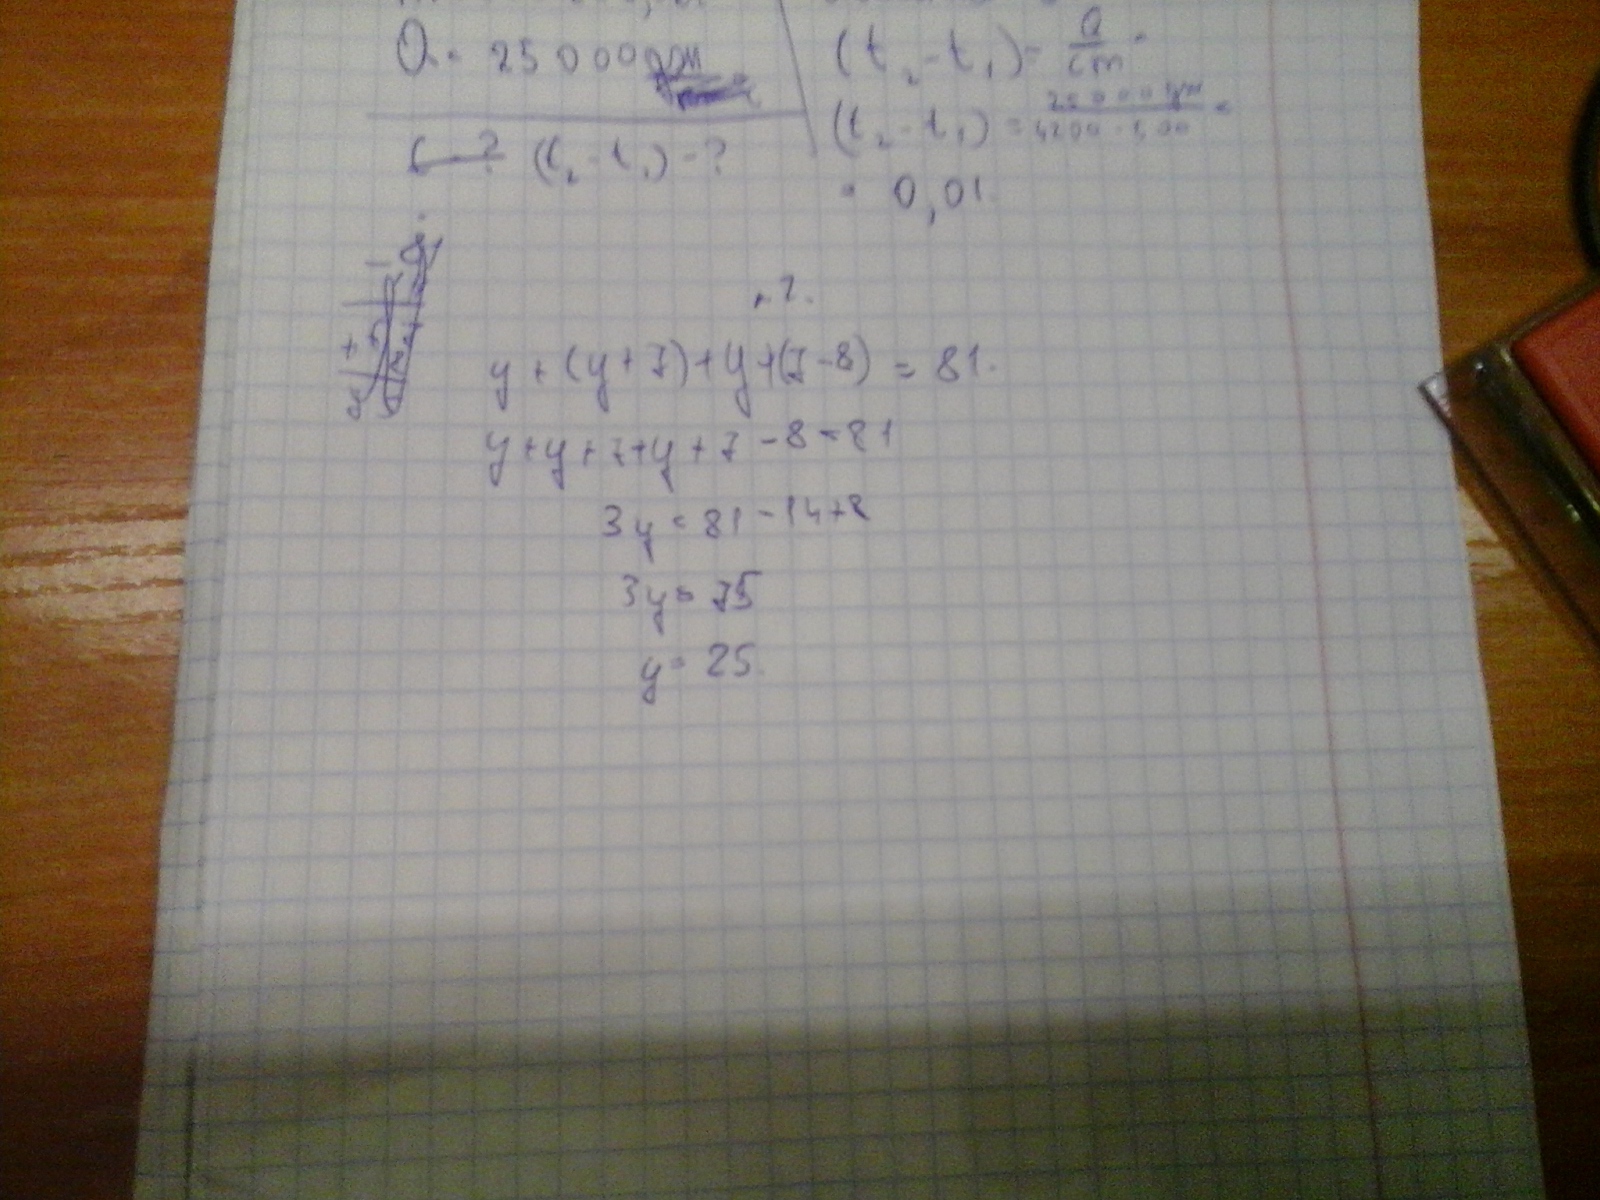 Q = 25 0000 Дж
(t₂ - t₁) - ?
(t₂ - t₁) = Q/cm =
(t₂ - t₁) = 250000 Дж/4200 · 1,00 =
= 0,01.
y + (y + 7) + y + (7 - 8) = 81.
y + y + 7 + y + 7 - 8 = 81
3y = 81 - 14 + 8
3y = 75
y = 25.